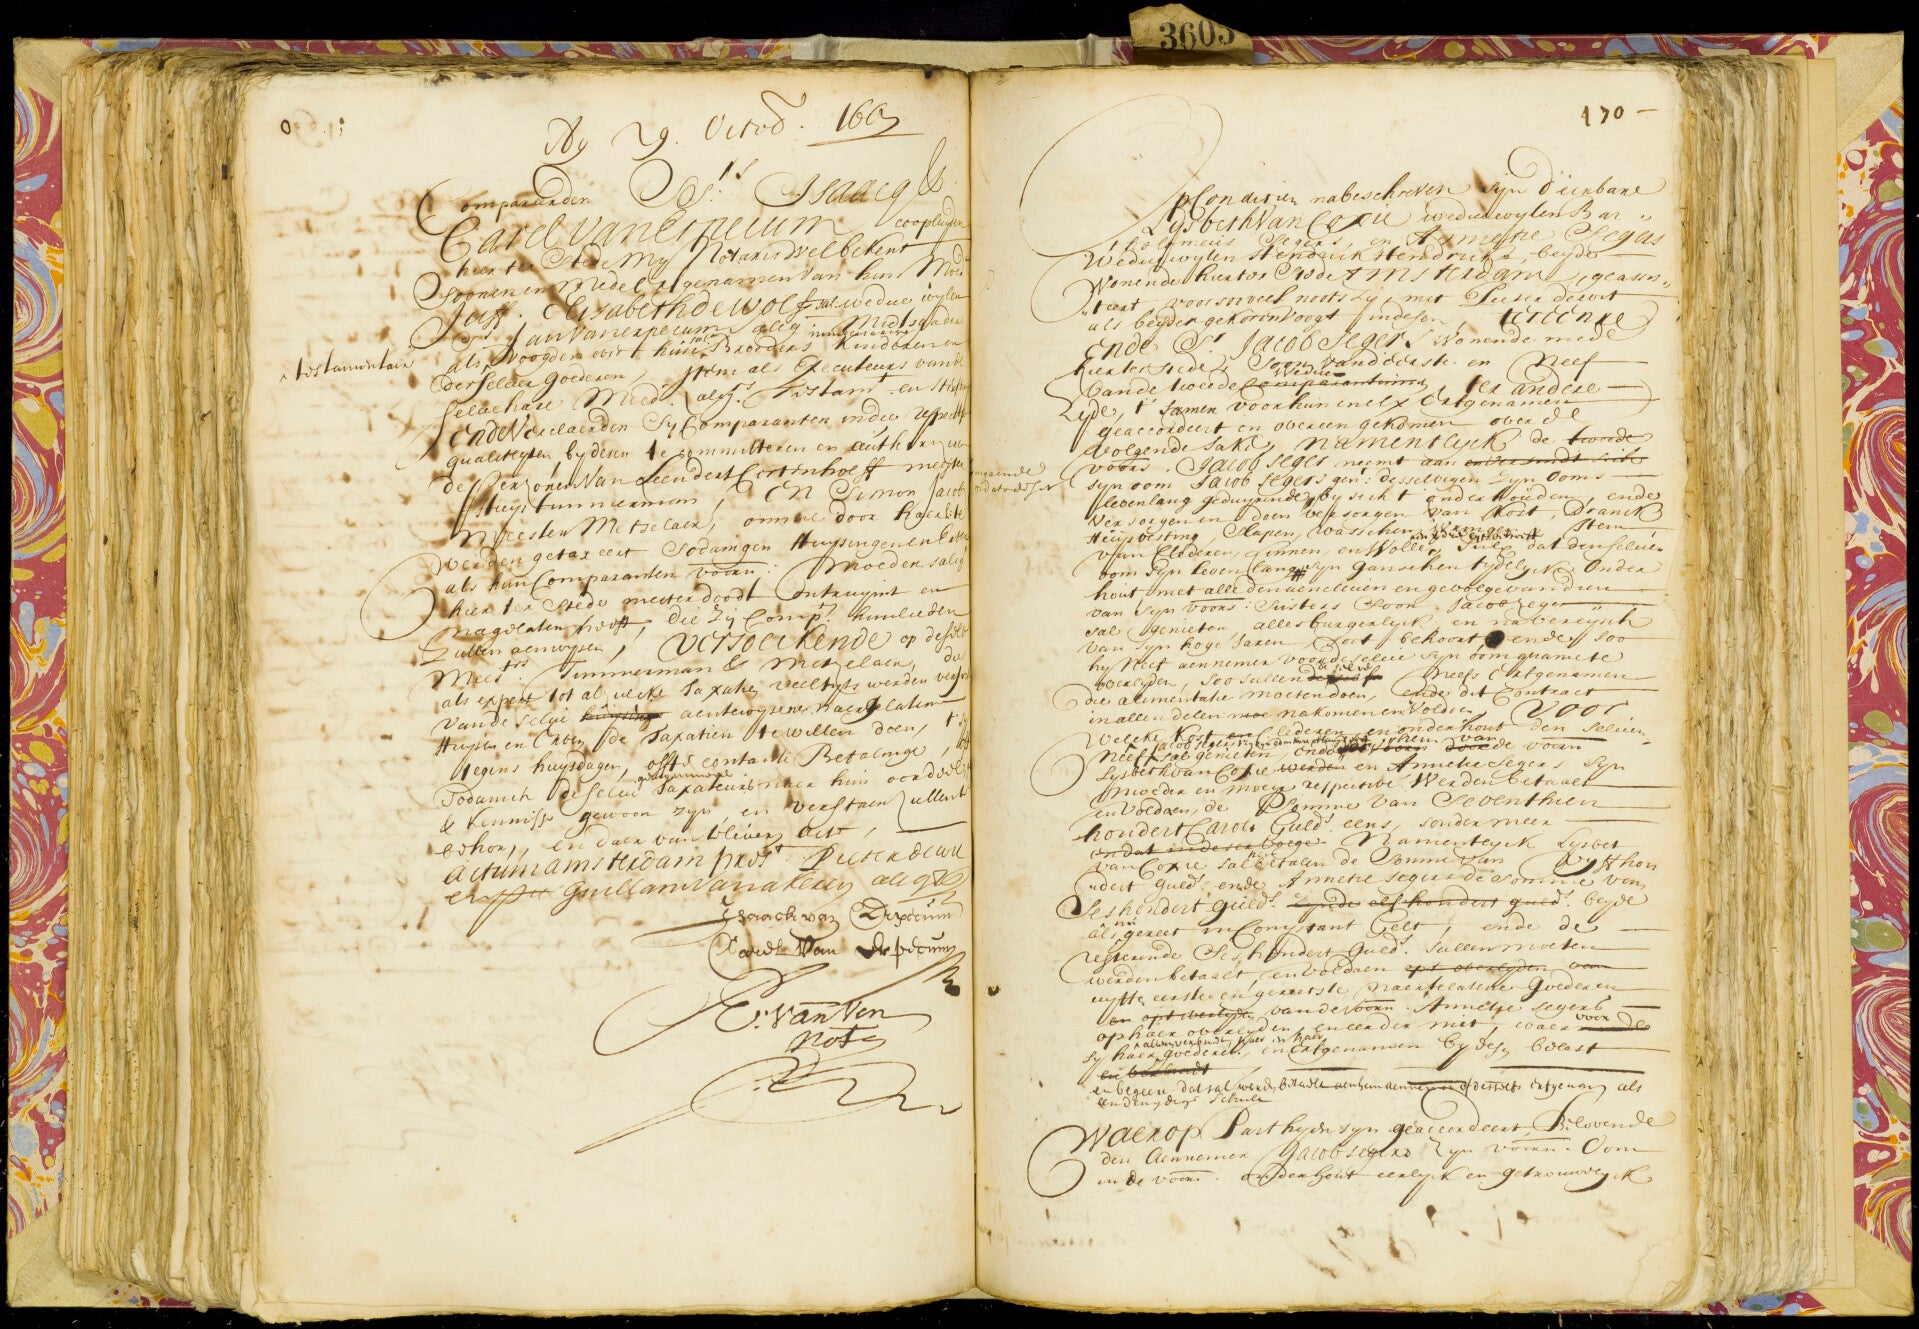 3605
Ady 29. Octob. 166
Comparerden Srs. Isaacq &
Carel van Erpecum cooplieden
hier ter Stede my Notaris wel bekent
Soonen en mede Erfgenamen van hun Moed
Juff. Elisabeth de Wolff za. weduwe wylen
Sr. Jan van Erpecum alhier Mitsgaders
testamentaire
als voogden over hun sal. Broeders kinderen en
derselver goederen, Item als Executeurs van de
selve hare Moed. Testamt. en
Ende Verclaerden Sy Comparanten in dier respective
qualiteyten by desen te committeren en authoriseren
de Persoonen van Leendert Cortenhoeff meester
Huystimmerman, En Simon Jacob
meester Metselaer, omme door haerlie
werden getaxeert Sodanigen Huysingen en Erven
als hun Comparanten voorn. Moeder salig
hier ter Stede metter doodt ontruymt en
nagelaten heeft, die Zy Compten. hunlieden
Sullen aenwysen, Versoeckende op deselve
Meestrs. Timmerman & Metselaer, die
als expert tot al zulcke Taxatie veeltyts werden versocht
van de selve huysinge aentewysene naergelaten
Huysen en Erven de Taxatien te willen doen, t sy
tegens huysdagen, ofte contante Betalinge,
Sodanich deselve geassumeerde Taxateurs naer hun oordeel
& kennisse gewoon zyn, en verstaen Sullen te
behoren, en daer van leveren acte,
Actum Amsterdam prest. Pieter de Wit
en Guilliam van
Isaack van Erpecum
Carel Van Erpecum
P. van Ven
Nots
170
Op Conditien nabeschreven syn d'eerbare
Lysbeth van Coxie weduwe wylen Bar
tholomeus Segers, en Annetie Segers
Weduwe wylen Hendrick Hendricks, beyde
Wonende hier ter Stede Amsterdam, geassis
teert voor sooveel noots zy met Pieter de wit
als beyder gekoren voogt in desen, ter eenre
Ende Sr. Jacob Segers wonende mede
hier ter stede, Soon vande eerste en Neef
vande tweede Weduwe Comparantinne, ter andere
Zyde, t' samen voor hun en elx Erfgenamen
geaccordeert en overeen gekomen over de
volgende sake, namentlyck de
voors. Jacob Seger neemt aan
syn oom Jacob Segers gen: desselven syn Ooms
levenlang geduyrende by sich t' onderhouden, ende
versorgen en doen versorgen van kost, Dranck
Huysvesting, Slapen, wasschen, wringen Item
van Clederen, Linnen, en Wollen, Sulx dat denselven
oom syn leven lang syn ganschen tydelyck onder
hout met alle den aencleven en gevolge van dien
van syn voors. Susters Soon Jacob Seger
sal genieten alles burgerlyck en na behoren
van syn hoge Jaren Soot behoort ende, soo
hy Neef aennemer voor deselve syn oom quame te
overlyden, Soo sullen deselve Neefs Erfgenamen
die alimentatie moeten doen, ende dit Contract
in allen delen nakomen en Voldoen, Voor
Welcke Kost en Clederen en onderhout den selven
Neef
Lysbeth van Coxie werden en Annetie Segers syn
moeder en moeye respective Werden betaelt
en voldaen, de Somme van Seventhien
hondert Caroli Guld. eens, sonder meer
Namentlyck Lysbet
van Coxie sal betalen de Somme van Elffhon
dert Guld. ende Annetie Segers de somme van
Seshondert Guld. beyde
als gereet in Constant Gelt, ende de
resterende Seshondert Guld. sullen moeten
werden betaelt en voldaen
uytte eerste en gereetste naergelatene goederen
vande voorn. Annetje Segers
op haer overlyden, en eerder niet, waer voor
sy haer goederen, en Erfgenamen by dese belast
en begeert dat sal werden betaelt aen hem aennemer of desselfs Erfgenamen als
een deugdige schult
Waerop Parthyen syn geaccordeert, Belovende
den Aennemer Jacob Segers Zyn voorn. Oom
in de voorn. onderhout eerlyck en getrouwelyck